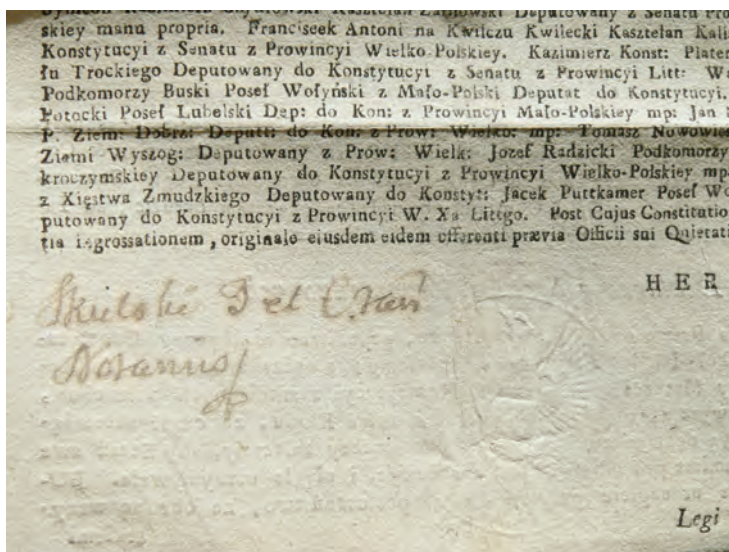 skiey manu propria. Franciszek Antoni na Kwilczu Kwilecki Kasztelan Kali
Konstytucyi z Senatu z Prowincyi Wielko-Polskiey. Kazimierz Konst: Plater
łu Trockiego Deputowany do Konstytucyi z Senatu z Prowincyi Litt: W
Podkomorzy Buski Poseł Wołyński z Mało-Polski Deputat do Konstytucyi.
Potocki Poseł Lubelski Dep: do Kon: z Prowincyi Mało-Polskiey mp: Jan
P. Ziem: Dobrz: Deputt: do Kon: z Prow: Wielko: mp: Tomasz Nowowie
Ziemi Wyszog: Deputowany z Prow: Wielk: Jozef Radzicki Podkomorzy
kroczymskiey Deputowany do Konstytucyi z Prowincyi Wielko-Polskiey mp
z Xięstwa Zmudzkiego Deputowany do Konstyt: Jacek Puttkamer Poseł Wo
putowany do Konstytucyi z Prowincyi W. Xa Littgo. Post Cujus Constitutio
tia ingrossationem, originale ejusdem eidem offerenti prævia Officii sui Quietati
HER
Notarius
Legi